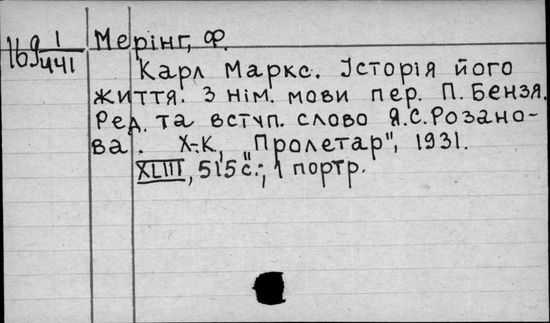 169 1/441
Мерінг, Ф.
Карл Маркс. Історія його
життя. З нім. мови пер. П. Бензя.
Ред. та вступ. слово Я.С.Розано-
ва. Х.-К., "Пролетар", 1931.
XLIII, 515 с.; 1 портр.